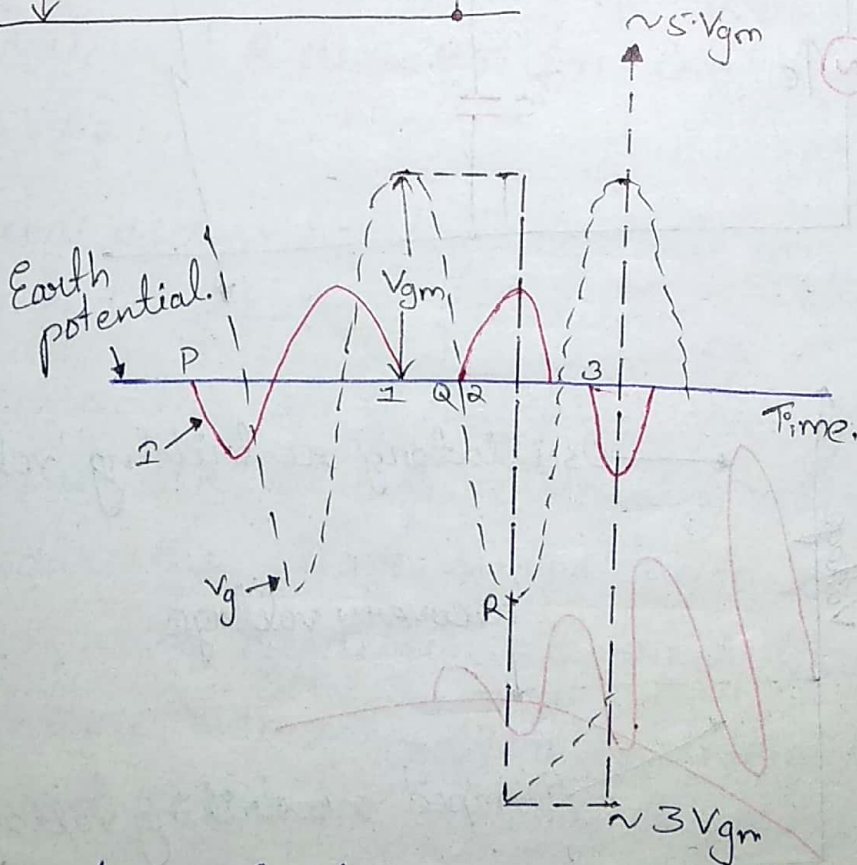 ~5.Vgm
Earth
potential.
P
Vgm
1 Q/2 3
I
Time.
Vg
R
~3Vgm